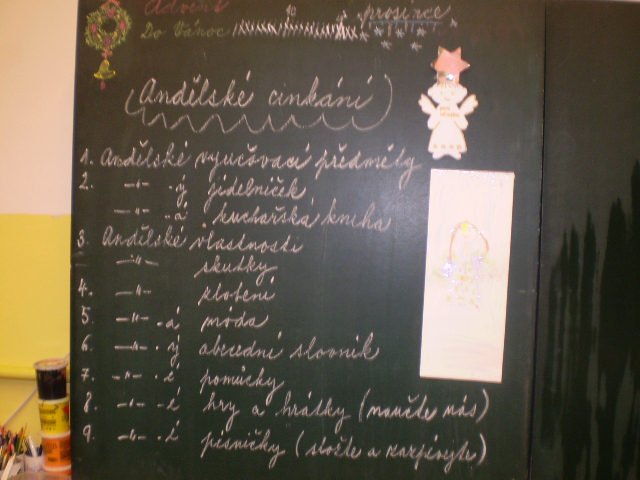 Advent
Do Vánoc
prosinec
(Andělské cinkání)
1. Andělské vyučovací předměty
2. -"- -ý jídelníček
-"- -á kuchařská kniha
3. Andělské vlastnosti
-"- skutky
4. -"- zlobení
5. -"- -á móda
6. -"- -ý abecední slovník
7. -"- -é pomůcky
8. -"- -é hry a hrátky (naučte nás)
9. -"- -é písničky (složte a zazpívejte)